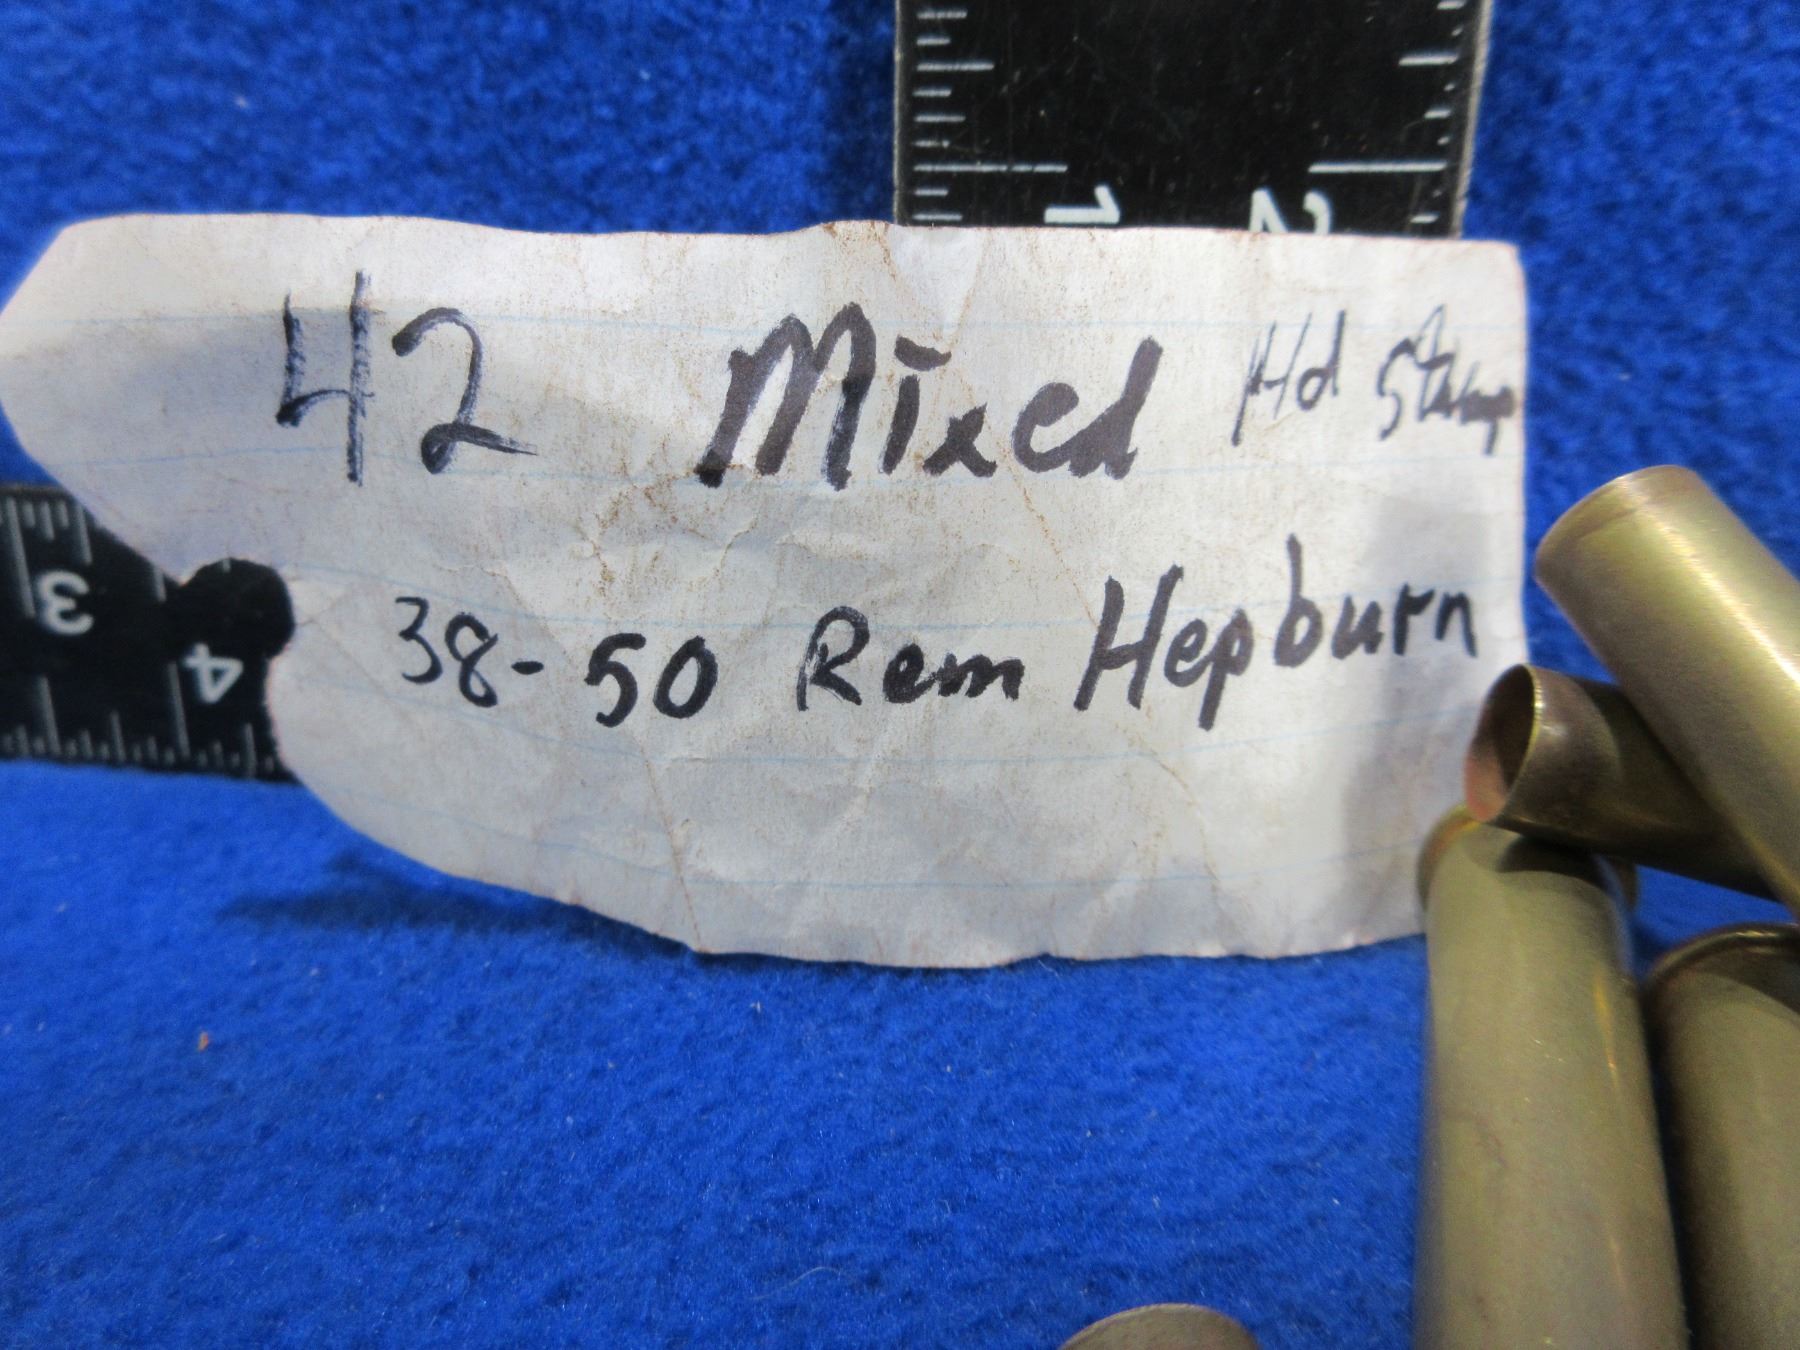 1 2
42 Mixed Hd Stamp
3
38-50 Rem Hepburn
4